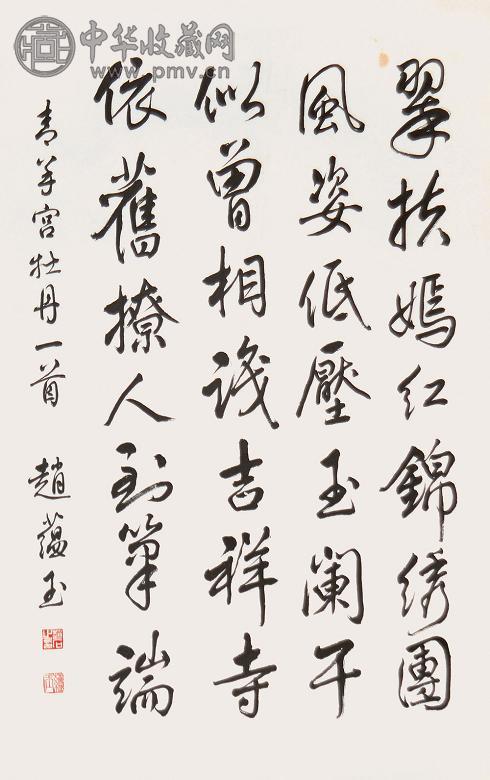 翠扶嫣红錦綉團
風姿低壓玉闌干
似曾相識吉祥寺
依舊撩人到筆端
青羊宮牡丹一首
趙蘊玉
中华收藏网
www.pmv.cn